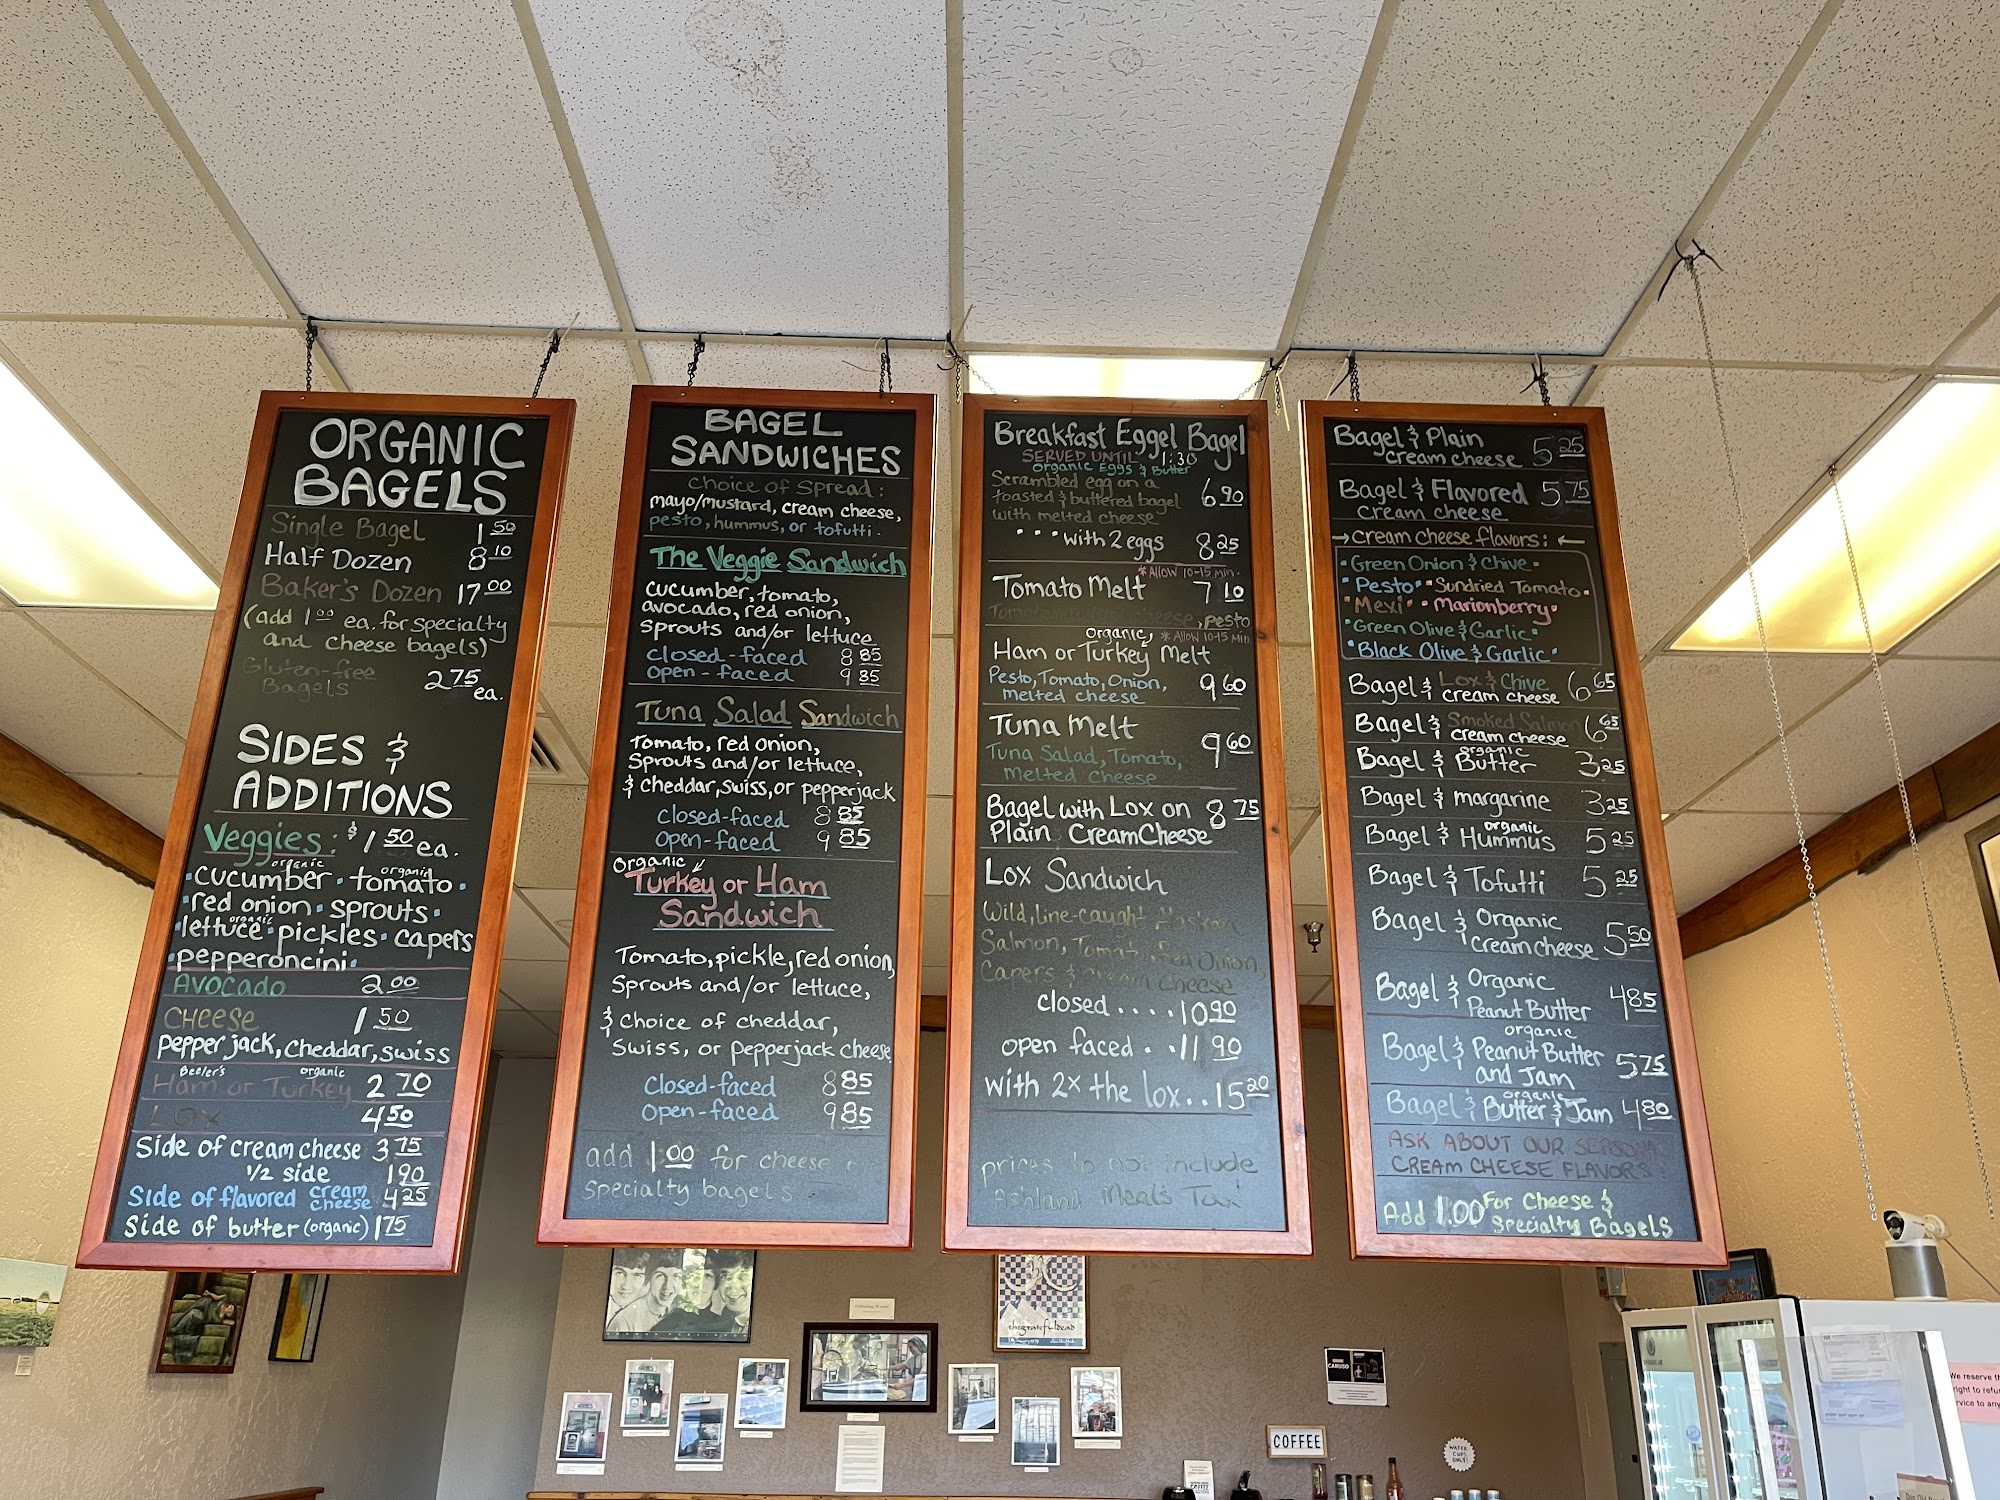 ORGANIC
BAGELS
Single Bagel 1 50
Half Dozen 8 10
Baker's Dozen 17 00
(add 1 00 ea. for specialty
and cheese bagels)
Gluten-free
Bagels 2 75 ea.
SIDES &
ADDITIONS
Veggies: $1 50 ea.
organic organic
• cucumber • tomato •
• red onion • sprouts •
organic
• lettuce • pickles • capers
• pepperoncini •
AVOCADO 2 00
CHEESE 1 50
pepper jack, cheddar, swiss
Beeler's organic
Ham or Turkey 2 70
LOX 4 50
Side of cream cheese 3 75
1/2 side 1 90
Side of flavored cream cheese 4 25
Side of butter (organic) 1 75
BAGEL
SANDWICHES
Choice of Spread:
mayo/mustard, cream cheese,
pesto, hummus, or tofutti.
The Veggie Sandwich
cucumber, tomato,
avocado, red onion,
Sprouts and/or lettuce
closed-faced 8 85
open-faced 9 85
Tuna Salad Sandwich
Tomato, red onion,
Sprouts and/or lettuce,
& cheddar, swiss, or pepperjack
closed-faced 8 85
open-faced 9 85
Organic
Turkey or Ham
Sandwich
Tomato, pickle, red onion,
Sprouts and/or lettuce,
& choice of cheddar,
Swiss, or pepperjack cheese
closed-faced 8 85
open-faced 9 85
add 1 00 for cheese &
specialty bagels.
Breakfast Eggel Bagel
SERVED UNTIL 1:30
Organic Eggs & Butter
Scrambled egg on a
toasted & buttered bagel 6 90
with melted cheese
• • • with 2 eggs 8 25
* ALLOW 10-15 min.
Tomato Melt 7 10
Tomato, melted cheese, pesto
organic, * ALLOW 10-15 min
Ham or Turkey Melt
Pesto, Tomato, Onion, 9 60
melted cheese
Tuna Melt
Tuna Salad, Tomato, 9 60
Melted cheese
Bagel with Lox on 8 75
Plain Cream Cheese
Lox Sandwich
Wild, line-caught Alaskan
Salmon, Tomato, Red Onion,
Capers & cream cheese
closed . . . . 10 90
open faced . . 11 90
with 2x the lox . . 15 20
prices do not include
Ashland Meals Tax
Bagel & Plain
cream cheese 5 25
Bagel & Flavored 5 75
cream cheese
→ cream cheese flavors: ←
• Green Onion & Chive •
• Pesto • • Sundried Tomato •
• Mexi • • Marionberry •
• Green Olive & Garlic •
• Black Olive & Garlic •
Bagel & Lox & Chive 6 65
cream cheese
Bagel & Smoked Salmon 6 65
cream cheese
organic
Bagel & Butter 3 25
Bagel & margarine 3 25
organic
Bagel & Hummus 5 25
Bagel & Tofutti 5 25
Bagel & Organic
cream cheese 5 50
Bagel & Organic
Peanut Butter 4 85
organic
Bagel & Peanut Butter
and Jam 5 75
organic
Bagel & Butter & Jam 4 80
ASK ABOUT OUR SEASONAL
CREAM CHEESE FLAVORS!
Add 1.00 For Cheese &
Specialty Bagels
thegratefuldead
CARUSO
COFFEE
WATER
CUPS
ONLY!
We reserve th
right to refu
rvice to any